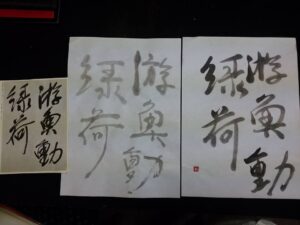 游魚動
緑荷
游魚動
緑荷
游魚動
緑荷